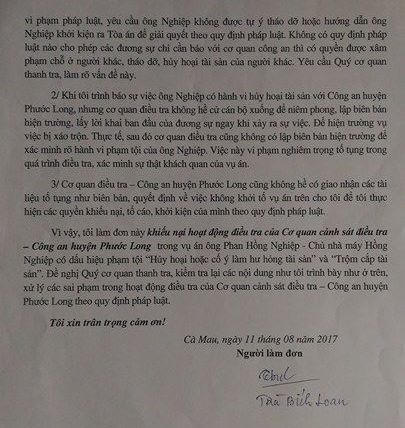 vi phạm pháp luật, yêu cầu ông Nghiệp không được tự ý tháo dỡ hoặc hướng dẫn ông
Nghiệp khởi kiện ra Tòa án để giải quyết theo quy định pháp luật. Không có quy định pháp
luật nào cho phép các đương sự chỉ cần báo với cơ quan công an thì có quyền được xâm
phạm chỗ ở người khác, tháo dỡ, hủy hoại tài sản của người khác. Yêu cầu Quý cơ quan
thanh tra, làm rõ vấn đề này.
2/ Khi tôi trình báo sự việc ông Nghiệp có hành vi hủy hoại tài sản với Công an huyện
Phước Long, nhưng cơ quan điều tra không hề cử cán bộ xuống để niêm phong, lập biên bản
hiện trường, lấy lời khai ban đầu của đương sự ngay khi xảy ra sự việc. Để hiện trường vụ
việc bị xáo trộn. Thực tế, sau đó cơ quan điều tra cũng không có lập biên bản hiện trường để
xác minh rõ hành vi phạm tội của ông Nghiệp. Việc này vi phạm nghiêm trọng tố tụng trong
quá trình điều tra, xác minh sự thật khách quan của vụ án.
3/ Cơ quan điều tra – Công an huyện Phước Long cũng không hề có giao nhận các tài
liệu tố tụng như biên bản, quyết định về việc không khởi tố vụ án trên cho tôi để tôi thực
hiện các quyền khiếu nại, tố cáo, khởi kiện của mình theo quy định pháp luật.
Vì vậy, tôi làm đơn này khiếu nại hoạt động điều tra của Cơ quan cảnh sát điều tra
– Công an huyện Phước Long trong vụ án ông Phan Hồng Nghiệp - Chủ nhà máy Hồng
Nghiệp có dấu hiệu phạm tội “Hủy hoại hoặc cố ý làm hư hỏng tài sản” và “Trộm cắp tài
sản”. Đề nghị Quý cơ quan thanh, kiểm tra lại các nội dung như tôi trình bày như ở trên,
xử lý các sai phạm trong hoạt động điều tra của Cơ quan cảnh sát điều tra – Công an huyện
Phước Long theo quy định pháp luật.
Tôi xin trân trọng cảm ơn!
Cà Mau, ngày 11 tháng 08 năm 2017
Người làm đơn
Bích Loan